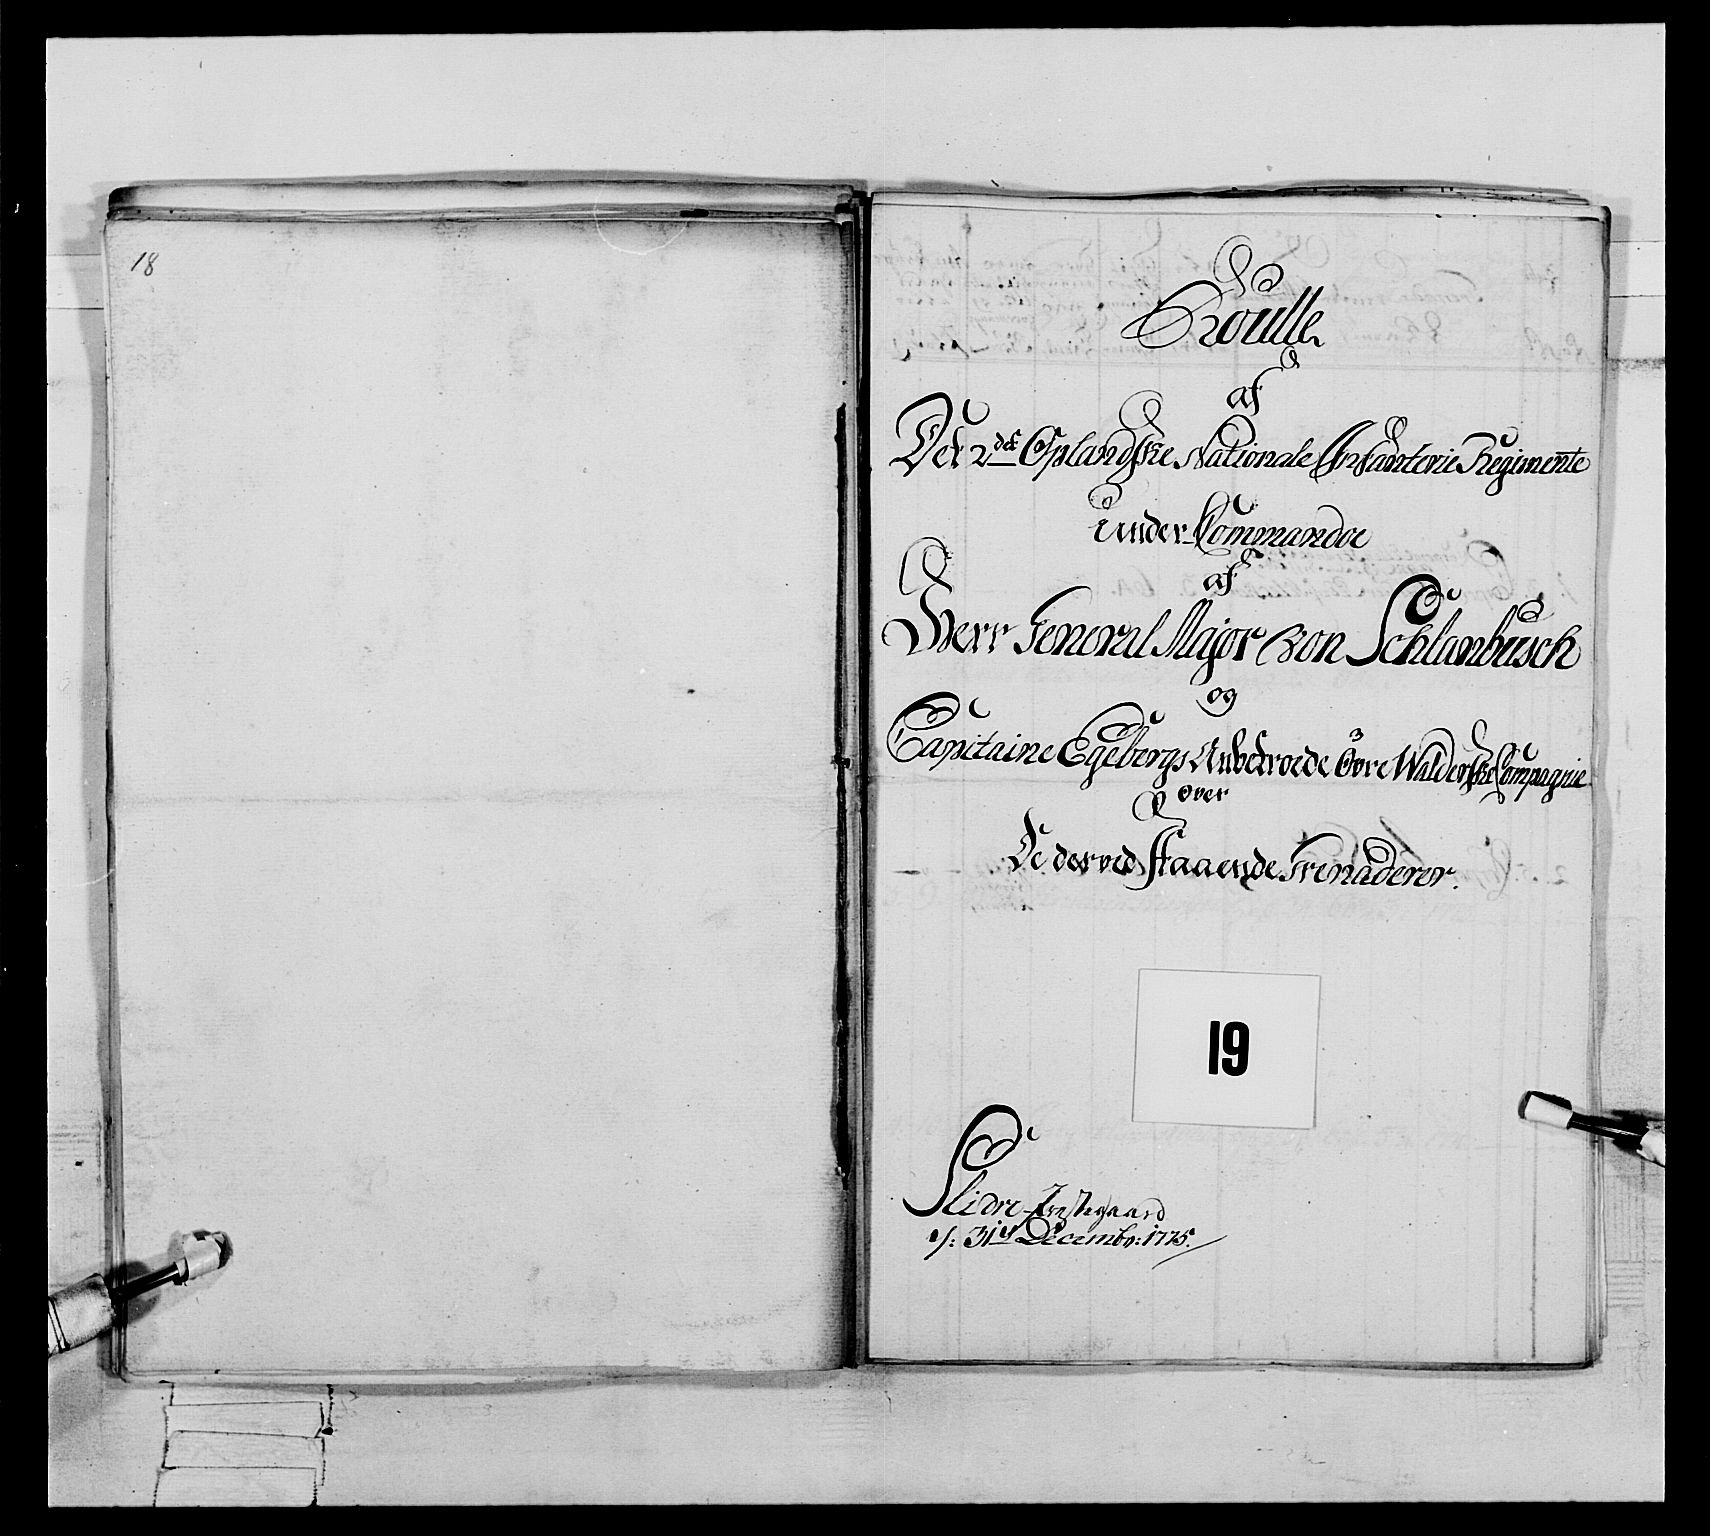 18
Roulle
af
Det 2det Oplandske Nationale Infanterie Regimente
under Commandoe
af
Herr General Major von Schlanbusch
og
Capitaine Egebergs Anbetroede Övre Walderske Compagnie
over
De derved staaende Grenaderer.
19
Slidre Præstegaard
d: 31te Decembr: 1775.